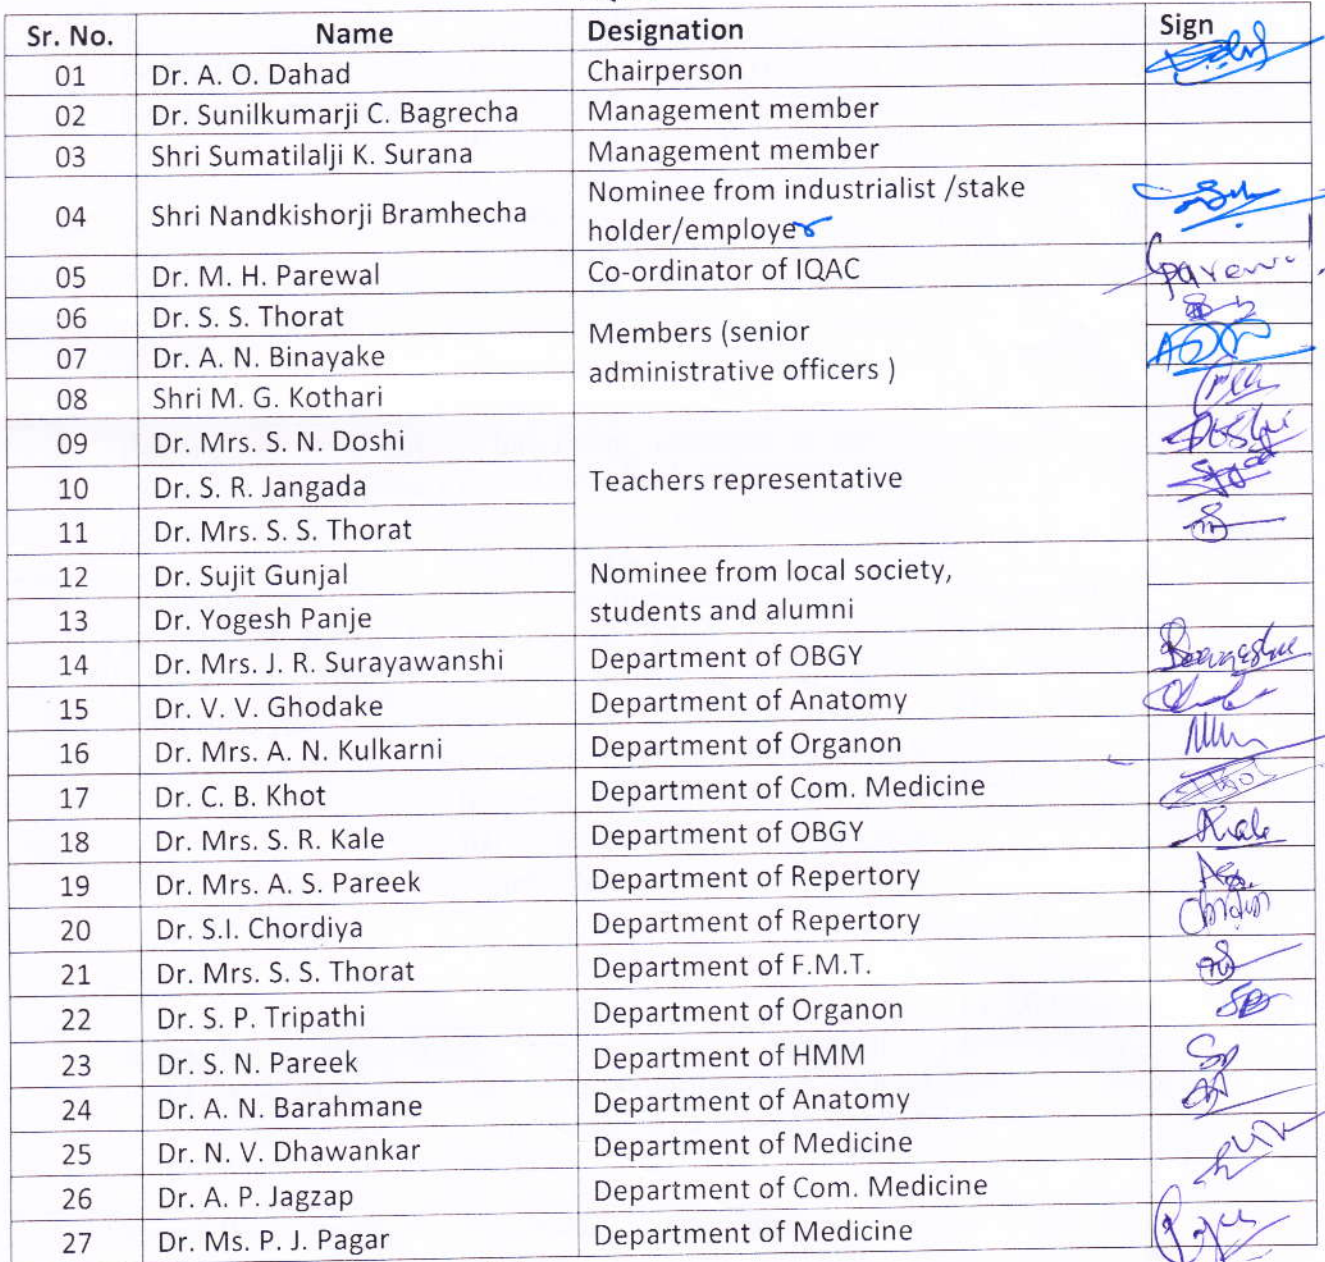 Sr. No. Name Designation Sign
01 Dr. A. O. Dahad Chairperson
02 Dr. Sunilkumarji C. Bagrecha Management member
03 Shri Sumatilalji K. Surana Management member
04 Shri Nandkishorji Bramhecha Nominee from industrialist /stake
holder/employer
05 Dr. M. H. Parewal Co-ordinator of IQAC
06 Dr. S. S. Thorat
Members (senior
07 Dr. A. N. Binayake
administrative officers )
08 Shri M. G. Kothari
09 Dr. Mrs. S. N. Doshi Doshi
10 Dr. S. R. Jangada Teachers representative
11 Dr. Mrs. S. S. Thorat
12 Dr. Sujit Gunjal Nominee from local society,
13 Dr. Yogesh Panje students and alumni
14 Dr. Mrs. J. R. Surayawanshi Department of OBGY
15 Dr. V. V. Ghodake Department of Anatomy
16 Dr. Mrs. A. N. Kulkarni Department of Organon
17 Dr. C. B. Khot Department of Com. Medicine
18 Dr. Mrs. S. R. Kale Department of OBGY Kale
19 Dr. Mrs. A. S. Pareek Department of Repertory
20 Dr. S.I. Chordiya Department of Repertory
21 Dr. Mrs. S. S. Thorat Department of F.M.T.
22 Dr. S. P. Tripathi Department of Organon
23 Dr. S. N. Pareek Department of HMM
24 Dr. A. N. Barahmane Department of Anatomy
25 Dr. N. V. Dhawankar Department of Medicine
26 Dr. A. P. Jagzap Department of Com. Medicine
27 Dr. Ms. P. J. Pagar Department of Medicine